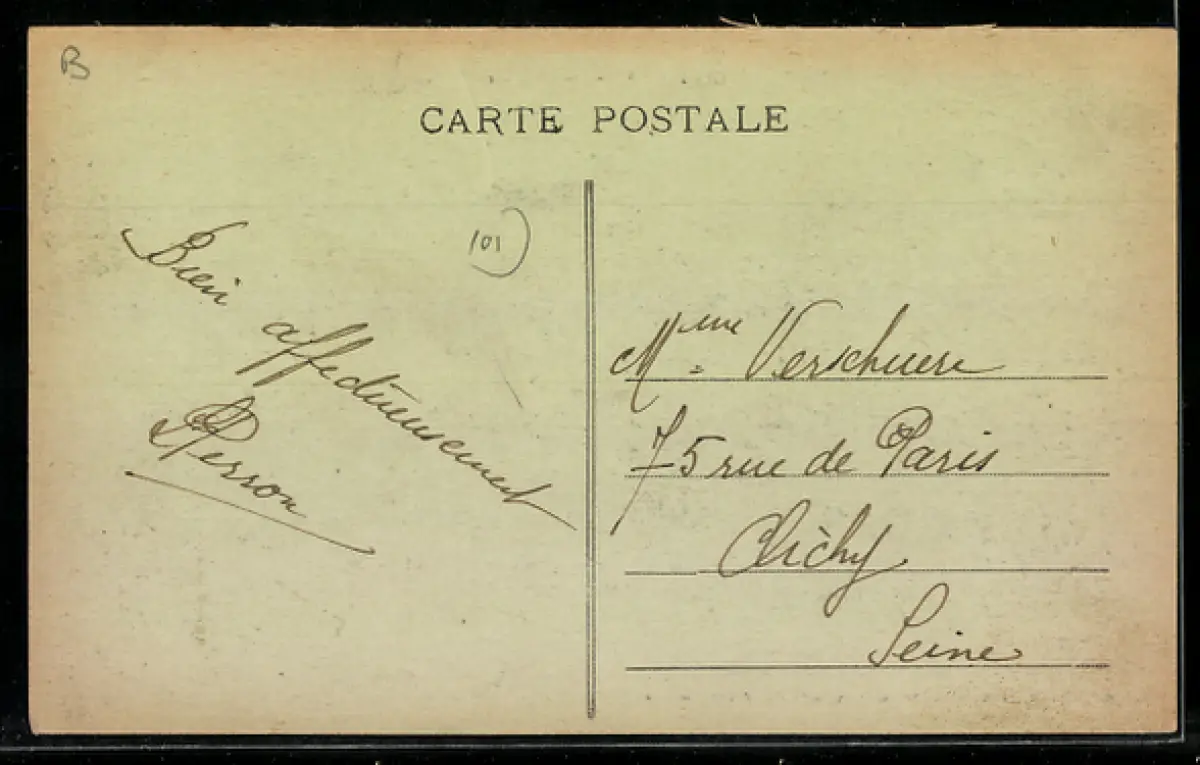 B
CARTE POSTALE
101
Bien
affectueusement
Perron
Mme Verschuere
75 rue de Paris
Clichy
Seine